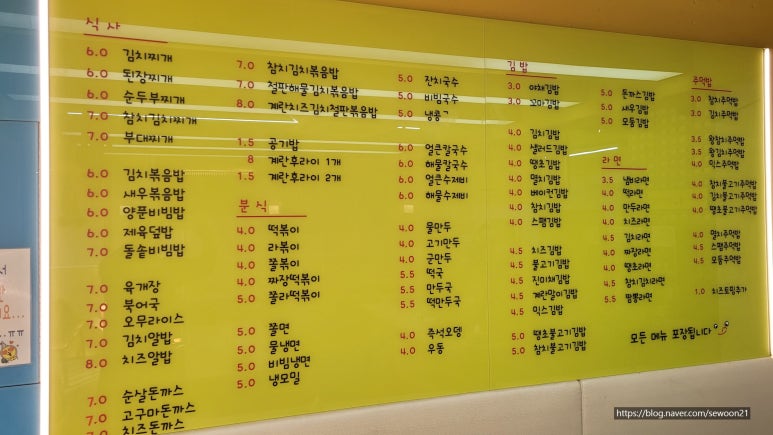 식사
6.0 김치찌개
6.0 된장찌개
6.0 순두부찌개
7.0 참치김치찌개
7.0 부대찌개
6.0 김치볶음밥
6.0 새우볶음밥
6.0 양푼비빔밥
6.0 제육덮밥
7.0 돌솥비빔밥
7.0 육개장
7.0 북어국
7.0 오무라이스
7.0 김치알밥
8.0 치즈알밥
7.0 순살돈까스
7.0 고구마돈까스
7.0 치즈돈까스
7.0 참치김치볶음밥
7.0 철판해물김치볶음밥
8.0 계란치즈김치철판볶음밥
1.5 공기밥
8 계란후라이 1개
1.5 계란후라이 2개
분식
4.0 떡볶이
4.0 라볶이
4.0 쫄볶이
4.0 짜장떡볶이
5.0 쫄라떡볶이
5.0 쫄면
5.0 물냉면
5.0 비빔냉면
5.0 냉모밀
5.0 잔치국수
5.0 비빔국수
5.0
6.0 얼큰칼국수
6.0 해물칼국수
6.0 얼큰수제비
6.0 해물수제비
4.0 물만두
4.0 고기만두
4.0 군만두
5.5 떡국
5.5 만두국
5.5 떡만두국
4.0 즉석오뎅
4.0 우동
김밥
3.0 야채김밥
3.0 꼬마김밥
4.0 김치김밥
4.0 샐러드김밥
4.0 땡초김밥
4.0 멸치김밥
4.0 베이컨김밥
4.0 참치김밥
4.0 스팸김밥
4.5 치즈김밥
4.5 불고기김밥
4.5 진미채김밥
4.5 계란말이김밥
4.5 믹스김밥
5.0 땡초불고기김밥
5.0 참치불고기김밥
5.0 돈까스김밥
5.0 새우김밥
5.0 모둠김밥
라면
3.5 냄비라면
4.0 떡라면
4.0 만두라면
4.0 치즈라면
4.5 김치라면
4.0 짜장라면
4.0 땡초라면
4.5 참치김치라면
5.5 짬뽕라면
주먹밥
3.0 참치주먹밥
3.0 김치주먹밥
3.5 왕참치주먹밥
3.5 왕김치주먹밥
4.0 믹스주먹밥
4.0 참치불고기주먹밥
4.0 김치불고기주먹밥
4.0 땡초불고기주먹밥
4.0 멸치주먹밥
4.5 스팸주먹밥
4.5 모둠주먹밥
1.0 치즈토핑추가
모든 메뉴 포장됩니다
https://blog.naver.com/sewoon21